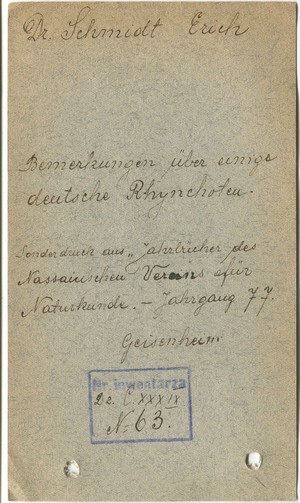 Dr. Schmidt Erich
Bemerkungen über einige
deutsche Rhynchoten.
Sonderdruck aus „Jahrbücher des
Nassauischen Vereins für
Naturkunde. — Jahrgang 77.
Geisenheim
Nr. inwentarza
Dz. C. XXXIX
N. 63.